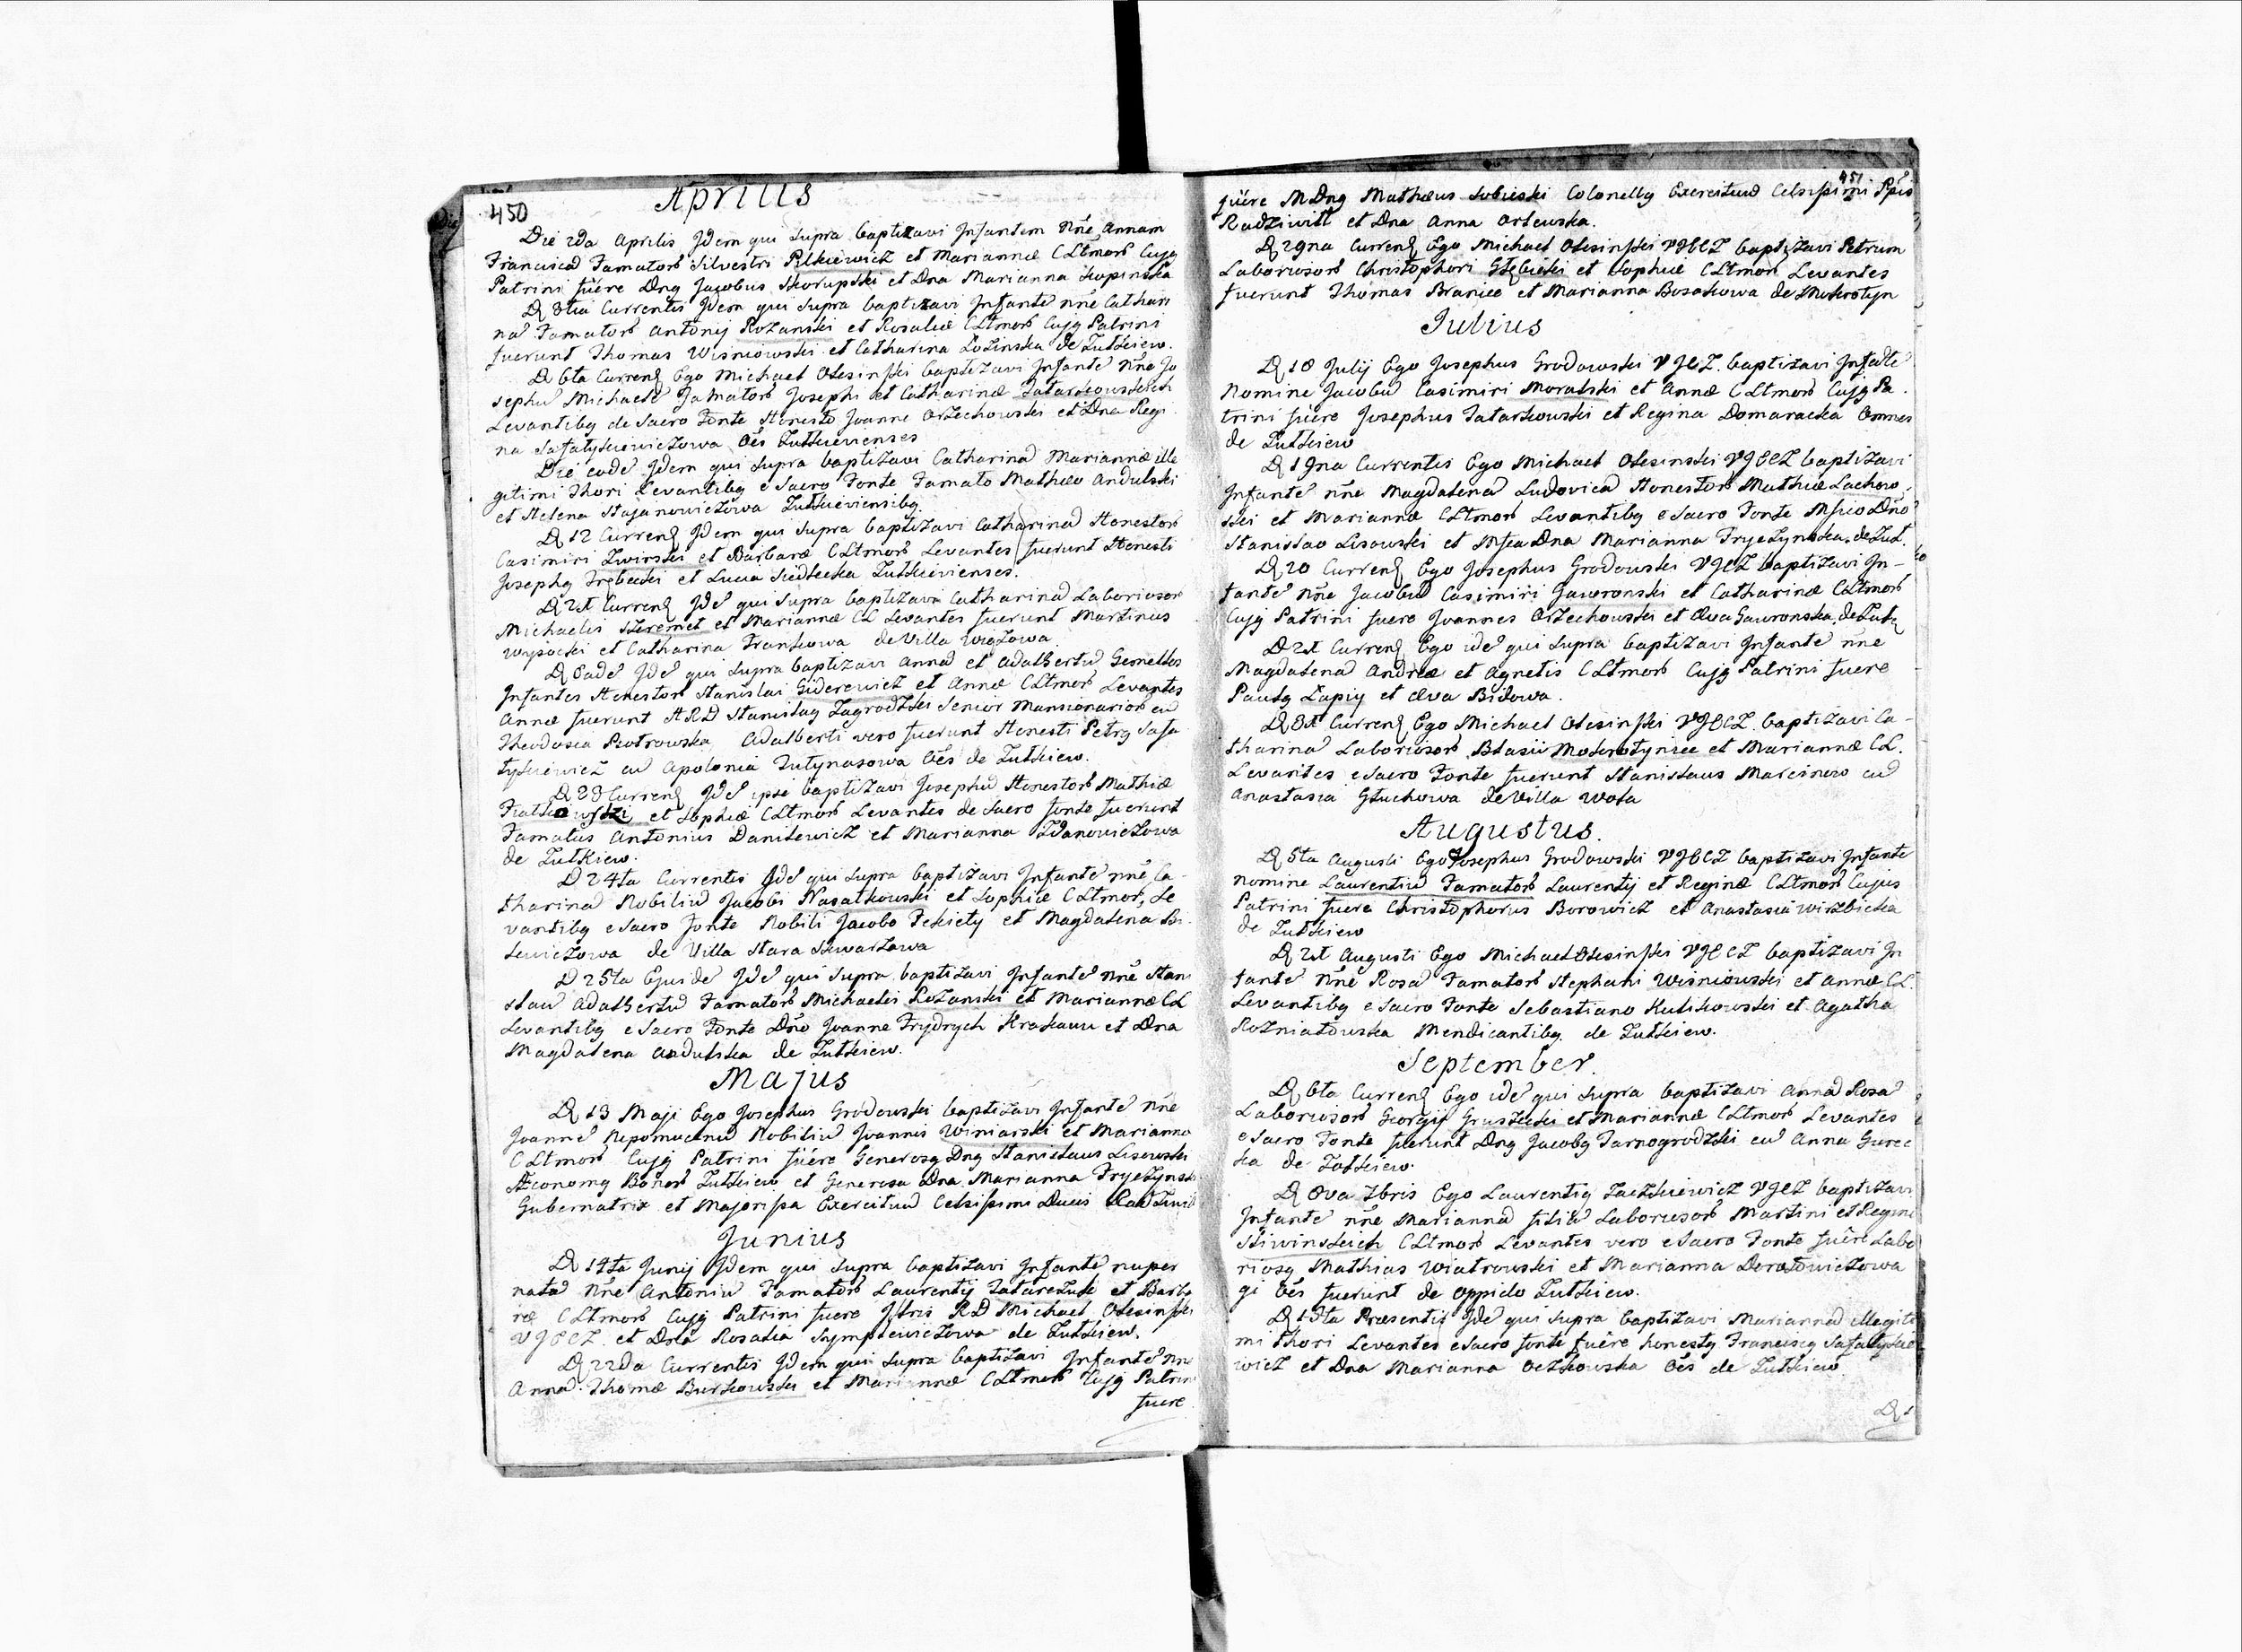 450
Aprilis
Die 2da Aprilis Jdem qui supra baptizavi Jnfantem nñe Annam
Franciscã Famatorũ Silvestri Pilkiewicz et Mariannæ CLtmorũ Cujq
Patrini fuere Dnq Jacobus Skorupski et Dna Marianna Skopinska
D 3tia Currentis Jdem qui supra baptizavi Jnfantẽ nñe Cathari
nã Famatorũ Antonij Rozanski et Rosaliæ CLtmorũ Cujq Patrini
fuerunt Thomas Wisniowski et Catharina Lozinska de Zułkiew.
D 6ta Currenq Ego Michael Olesinski baptizavi Jnfantẽ nñe Jo
sephũ Michaelẽ Famatorũ Josephi et Catharinæ Tatarkowskich
Levantibq de Sacro Fonte Honesto Joanne Orzechowski et Dna Regi
na Safatykiewiczowa Oẽs Zułkievienses
Die eadẽ Jdem qui supra baptizavi Catharinã Mariannæ ille
gitimi Thori Levantibq e Sacro Fonte Famato Mathæo Andulski
et Helena Stajanowiczowa Zułkieviensibq.
D 12 Currenq Jdem qui supra baptizavi Catharinã Honestorũ
Casimiri Zwirski et Barbaræ CLtmorũ Levantes fuerunt Honesti
Josephq Trębecki et Lucia Siedlecka Zułkievienses.
D 21 Currenq Jdẽ qui supra baptizavi Catharinã Laboriosorũ
Michaelis Szeremet et Mariannæ CL Levantes fuerunt Martinus
Wysocki et Catharina Frankowa de Villa Wiązowa
D Eadẽ Jdẽ qui supra baptizavi Annã et Adalbertũ Gemellos
Jnfantes Honestorũ Stanislai Giderewicz et Annæ CLtmorũ Levantes
Annæ fuerunt ARD Stanislaq Zagrodzki Senior Mansionariorũ cũ
Theodosia Piotrowska Adalberti vero fuerunt Honesti Petrq Safa
tykiewicz cũ Apolonia Tutynasowa Oẽs de Zułkiew.
D 23 Currenq Jdẽ ipse baptizavi Josephũ Honestorũ Mathiæ
Fiałkowski et Sophiæ CLtmorũ Levantes de Sacro Fonte fuerunt
Famatus Antonius Danilewicz et Marianna Zdanowiczowa
de Zułkiew.
D 24ta Currentis Jdẽ qui supra baptizavi Jnfantẽ nñe Ca-
tharinã Nobiliũ Jacobi Nasałkowski et Sophiæ CLtmorũ, Le
vantibq e Sacro Fonte Nobili Jacobo Fekiety et Magdalena
lewiczowa de Villa Stara Skwarzawa
D 25ta Ejusdẽ Jdẽ qui supra baptizavi Jnfantẽ nñe Stani
slaũ Adalbertũ Famatorũ Michaelis Rozanski et Mariannæ CL
Levantibq e Sacro Fonte Dño Joanne Frydrych Krakauu et Dna
Magdalena Andulska de Zułkiew.
Majus
D 13 Maji Ego Josephus Grodowski baptizavi Jnfantẽ nñe
Joannẽ Nepomucenũ Nobiliũ Joannis Winiarski et Marianna
CLtmorũ Cujq Patrini fuere Generosq Dnq Stanislaus Lisowski
Æconomq Bonorũ Zułkiew et Generosa Dna Marianna Fryczynsk
Gubernatrix et Majorissa Exercituũ Celsissimi Ducis Radziwił
Junius
D 14ta Junij Jdem qui supra baptizavi Jnfantẽ nuper
natũ nñe Antoniũ Famatorũ Laurentij Tatarczuk et Barba
ræ CLtmorũ Cujq Patrini fuere Jllris RD Michael Olesinski
VJECZ et Dna Rosalia Symplewiczowa de Zułkiew.
D 22da Currentis Jdem qui supra baptizavi Jnfantẽ nñe
Annã Thomæ Burkowski et Mariannæ CLtmorũ Cujq Patrini
fuere
451
fuere MDnq Mathæus Sobieski Colonellq Exercituũ Celsissimi Ppis
Radziwiłł et Dna Anna Orlewska.
D 29na Currenq Ego Michael Olesinski VJECZ baptizavi Petrum
Laboriosorũ Christophori Głębicki et Sophiæ CLtmorũ Levantes
fuerunt Thomas Braniec et Marianna Bosakowa de Mokrotyn
Julius
D 18 Julij Ego Josephus Grodowski VJECZ. baptizavi Jnfãte
Nomine Jacobũ Casimiri Moralski et Annæ CLtmorũ Cujq Pa.
trini fuere Josephus Tatarkowski et Regina Domaracka Omnes
de Zułkiew
D 19na Currentis Ego Michael Olesinski VJECZ baptizavi
Jnfantẽ nñe Magdalenã Ludovicã Honestorũ Mathiæ Lachow,
ski et Mariannæ CLtmorũ Levantibq e Sacro Fonte Mfico Dño
Stanislao Lisowski et Mfca Dna Marianna Fryczynska. de Zuł.
D 20 Currenq Ego Josephus Grodowski VJECZ baptizavi Jn-
fantẽ nñe Jacobũ Casimiri Gawronski et Catharinæ CLtmorũ
Cujq Patrini fuere Joannes Orzechowski et Eva Gawronska, de Zułq
D 21 Currenq Ego idẽ qui supra baptizavi Jnfantẽ nñe
Magdalenã Andreæ et Agnetis CLtmorũ Cujq Patrini fuere
Paulq Łapiy et Eva Bidowa.
D 31 Currenq Ego Michael Olesinski VJECZ. baptizavi Ca-
tharinã Laboriosorũ Blasii Mokrotyniec et Mariannæ CL.
Levantes e Sacro Fonte fuerunt Stanislaus Marcinow cũ
Anastasia Głuchowa de Villa Wola
Augustus.
D 5ta Augusti Ego Josephus Grodowski VJECZ baptizavi Jnfante
nomine Laurentiũ Famatorũ Laurentij et Reginæ CLtmorũ Cujus
Patrini fuere Christophorus Borowicz et Anastasia Wirzbicka
de Zułkiew
D 21 Augusti Ego Michael Olesinski VJECZ baptizavi Jn
fantẽ nñe Rosã Famatorũ Stephani Wisniowski et Annæ CL.
Levantibq e Sacro Fonte Sebastiano Kulikowski et Agatha
Rozniatowska Mendicantibq. de Zułkiew.
September.
D 6ta Currenq Ego idẽ qui supra baptizavi Annã Rosã
Laboriosorũ Georgij Gruszecki et Mariannæ CLtmorũ Levantes
e Sacro Fonte fuerunt Dnq Jacobq Tarnogrodzki cũ Anna Gurec
ka de Zołkiew.
D 8va 7bris Ego Laurentiq Zaczkiewicz VJECZ baptizavi
Jnfantẽ nñe Mariannã filiã Laboriosorũ Martini et Regina
Skiwinskich CLtmorũ Levantes vero e Sacro Fonte fuere Labo
riosq Mathias Wiatrowski et Marianna Dorotowiczowa
qi Oẽs fuerunt de Oppido Zułkiew.
D 15ta Præsentis Jdẽ qui supra baptizavi Mariannã illegiti
mi Thori Levantes e Sacro fonte fuere honestq Franciscq Safatykie
wicz et Dna Marianna Oczkowska Oẽs de Zułkiew.